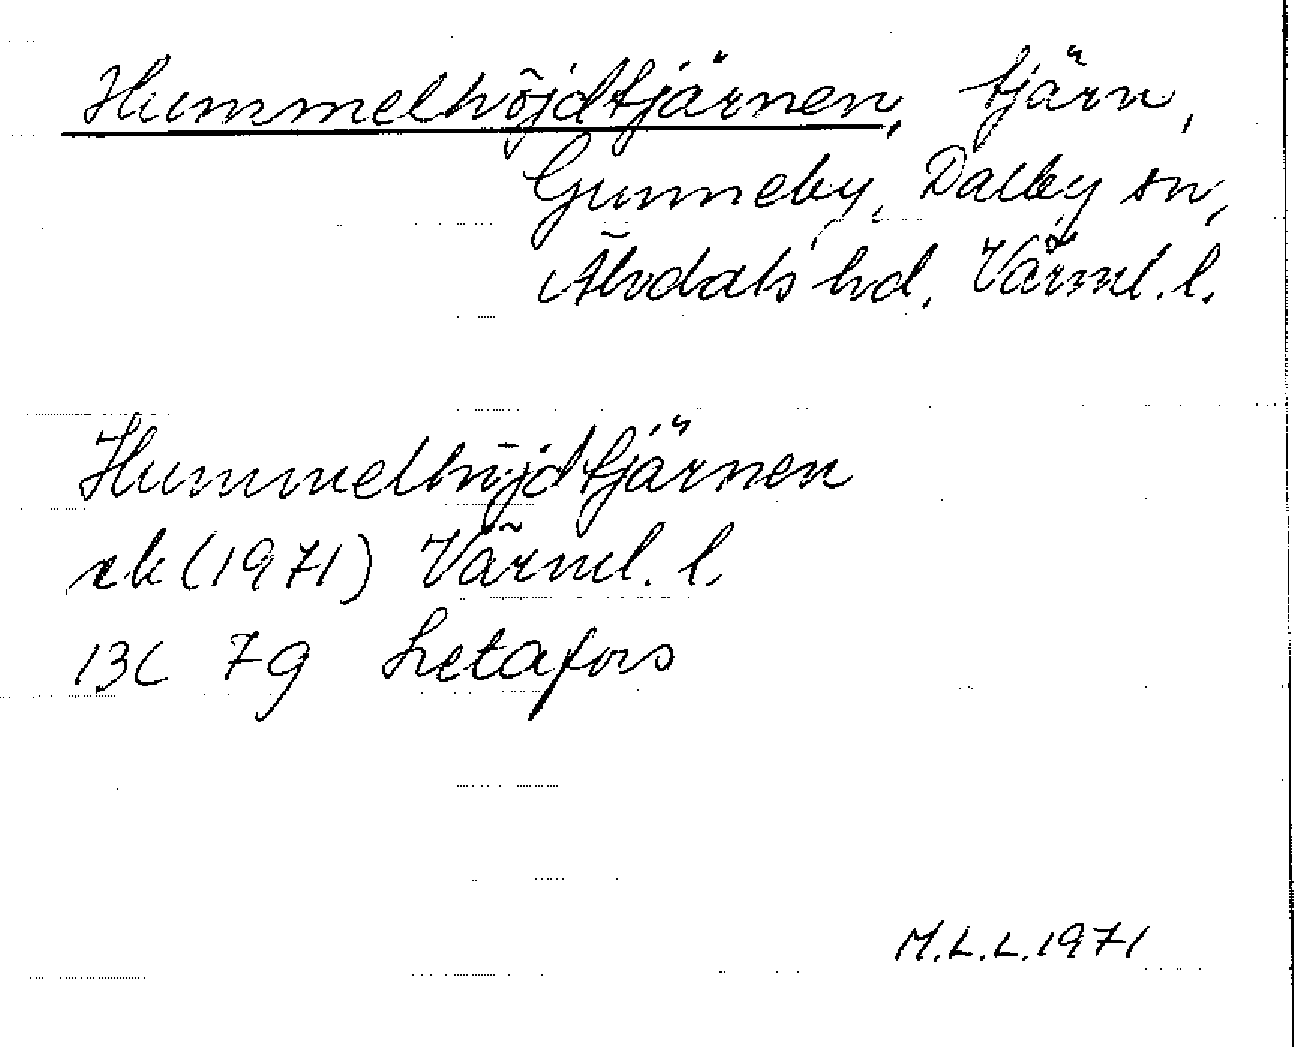 Hummelhöjdtjärnen, tjärn,
Gunneby, Dalby sn,
Älvdals hd, Värml. l.
Hummelhöjdtjärnen
ek (1971) Värml. l.
13C 7g Letafors
M.L.L. 1971